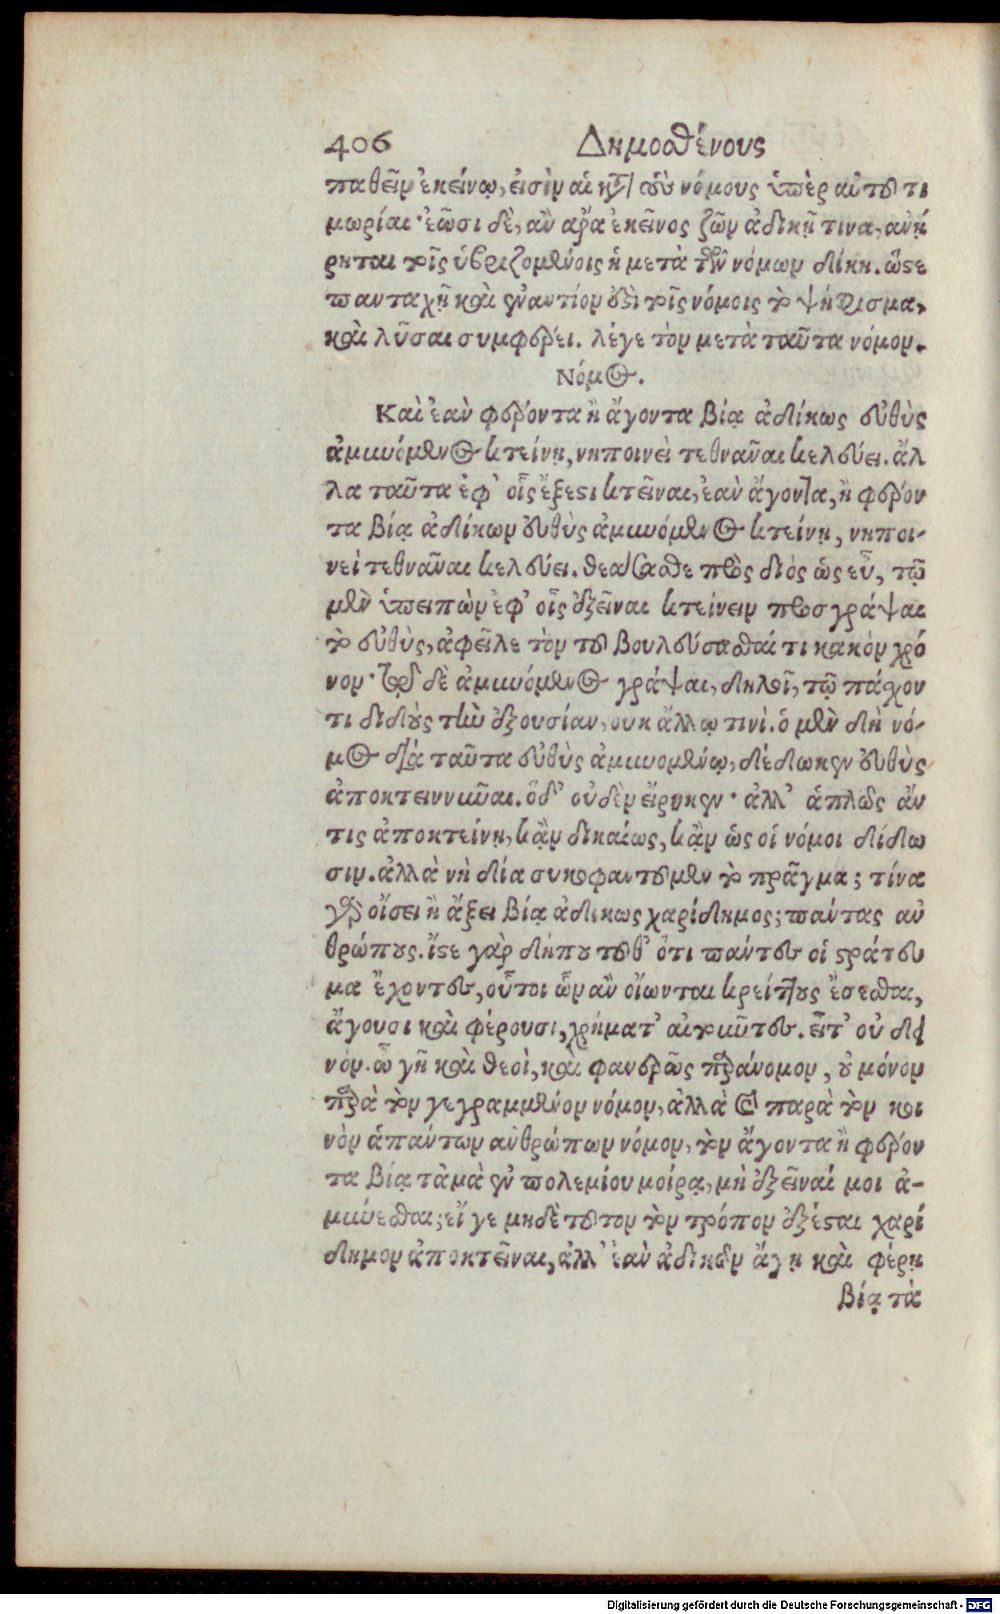 406 Δημοσθένους
παθεῖν ἐκείνῳ, εἰσὶν αἱ κατὰ τοὺς νόμους ὑπὲρ αὐτοῦ τι
μωρίαι· ἐῶσι δὲ, ἂν ἄρα ἐκεῖνος ζῶν ἀδικῇ τινα, ἀνῄ
ρηται τοῖς ὑβριζομένοις ἡ μετὰ τῶν νόμων δίκη. ὥστε
πανταχῇ καὶ ἐναντίον ἐστὶ τοῖς νόμοις τὸ ψήφισμα,
καὶ λῦσαι συμφέρει. λέγε τὸν μετὰ ταῦτα νόμον.
Νόμος.
Καὶ ἐὰν φέροντα ἢ ἄγοντα βίᾳ ἀδίκως εὐθὺς
ἀμυνόμενος κτείνῃ, νηποινεὶ τεθνᾶναι κελεύει. ἄλ
λα ταῦτα ἐφ' οἷς ἔξεστι κτεῖναι, ἐὰν ἄγοντα, ἢ φέρον
τα βίᾳ ἀδίκων εὐθὺς ἀμυνόμενος κτείνῃ, νηποι-
νεὶ τεθνᾶναι κελεύει. θεάσασθε πρὸς διός ὡς εὖ, τῷ
μὲν ὑπειπὼν ἐφ' οἷς ἐξεῖναι κτείνειν προσγράψαι
τὸ εὐθὺς, ἀφεῖλε τὸν τοῦ βουλεύσασθαί τι κακὸν χρό
νον· τῷ δὲ ἀμυνόμενος γράψαι, δηλοῖ, τῷ πάσχον
τι διδοὺς τὴν ἐξουσίαν, ουκ ἄλλῳ τινὶ. ὁ μὲν δὴ νό-
μος διὰ ταῦτα εὐθὺς ἀμυνομένῳ, δέδωκεν εὐθὺς
ἀποκτειννῦναι. ὅδ' οὐδὲν εἴρηκεν· ἀλλ' ἁπλῶς ἄν
τις ἀποκτείνῃ, κἂν δικαίως, κἂν ὡς οἱ νόμοι δίδω
σιν. ἀλλὰ νὴ δία συκοφαντοῦμεν τὸ πρᾶγμα; τίνα
γὰρ οἴσει ἢ ἄξει βίᾳ ἀδικως χαρίδημος; πάντας αν
θρώπους. ἴστε γὰρ δήπου τοῦθ' ὅτι πάντες οἱ στράτευ
μα ἔχοντες, οὗτοι ὧν ἂν οἴωνται κρείττους ἔσεσθαι,
ἄγουσι καὶ φέρουσι, χρήματ' αἰτοῦντες. εἶτ' οὐ δει
νὸν. ὦ γῆ καὶ θεοὶ, καὶ φανερῶς παράνομον, οὐ μόνον
παρὰ τὸν γεγραμμένον νόμον, ἀλλὰ καὶ παρὰ τὸν κοι
νὸν ἁπάντων ἀνθρώπων νόμον, τὸν ἄγοντα ἢ φέρον
τα βίᾳ τἀμὰ ἐν πολεμίου μοίρᾳ, μὴ ἐξεῖναί μοι ἀ-
μύνεσθαι; εἴ γε μηδὲ τοῦτον τὸν τρόπον ἐξέσται χαρί
δημον ἀποκτεῖναι, ἀλλ' ἐὰν ἀδικῶν ἄγῃ καὶ φέρῃ
βίᾳ τὰ
Digitalisierung gefördert durch die Deutsche Forschungsgemeinschaft - DFG